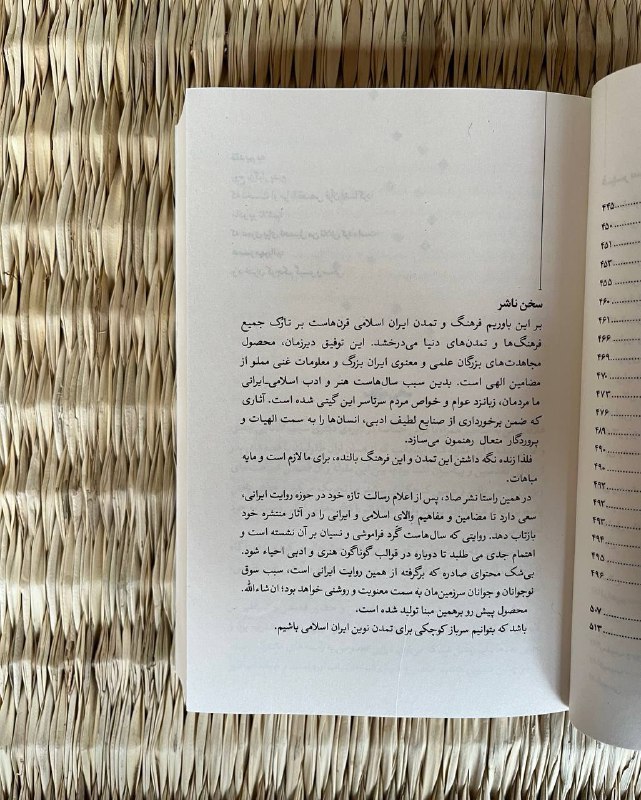 سخن ناشر
بر این باوریم فرهنگ و تمدن ایران اسلامی قرن‌هاست بر تارُک جمیع
فرهنگ‌ها و تمدن‌های دنیا می‌درخشد. این توفیق دیرزمان، محصول
مجاهدت‌های بزرگان علمی و معنوی ایران بزرگ و معلومات غنی مملو از
مضامین الهی است. بدین سبب سال‌هاست هنر و ادب اسلامی‌ـ‌ایرانی
ما مردمان، زبانزد عوام و خواص مردم سرتاسر این گیتی شده است. آثاری
که ضمن برخورداری از صنایع لطیف ادبی، انسان‌ها را به سمت الهیات و
پروردگار متعال رهنمون می‌سازد.
فلذا زنده نگه داشتن این تمدن و این فرهنگ بالنده، برای ما لازم است و مایه
مباهات.
در همین راستا نشر صاد، پس از اعلام رسالت تازه خود در حوزه روایت ایرانی،
سعی دارد تا مضامین و مفاهیم والای اسلامی و ایرانی را در آثار منتشره خود
بازتاب دهد. روایتی که سال‌هاست گَرد فراموشی و نسیان بر آن نشسته است و
اهتمام جدی می طلبد تا دوباره در قوالب گوناگون هنری و ادبی احیاء شود.
بی‌شک محتوای صادره که برگرفته از همین روایت ایرانی است، سبب سوق
نوجوانان و جوانان سرزمین‌مان به سمت معنویت و روشنی خواهد بود؛ ان شاءالله.
محصول پیش رو برهمین مبنا تولید شده است.
باشد که بتوانیم سرباز کوچکی برای تمدن نوین ایران اسلامی باشیم.
۴۴۵
۴۵۰
۴۵۱
۴۵۳
۴۵۵
۴۶۰
۴۶۱
۴۶۶
۴۶۹
۴۷۰
۴۷۳
۴۷۶
۴۸۹
۴۹۰
۴۹۰
۴۹۲
۴۹۳
۴۹۴
۴۹۵
۴۹۶
۵۰۷
۵۱۳